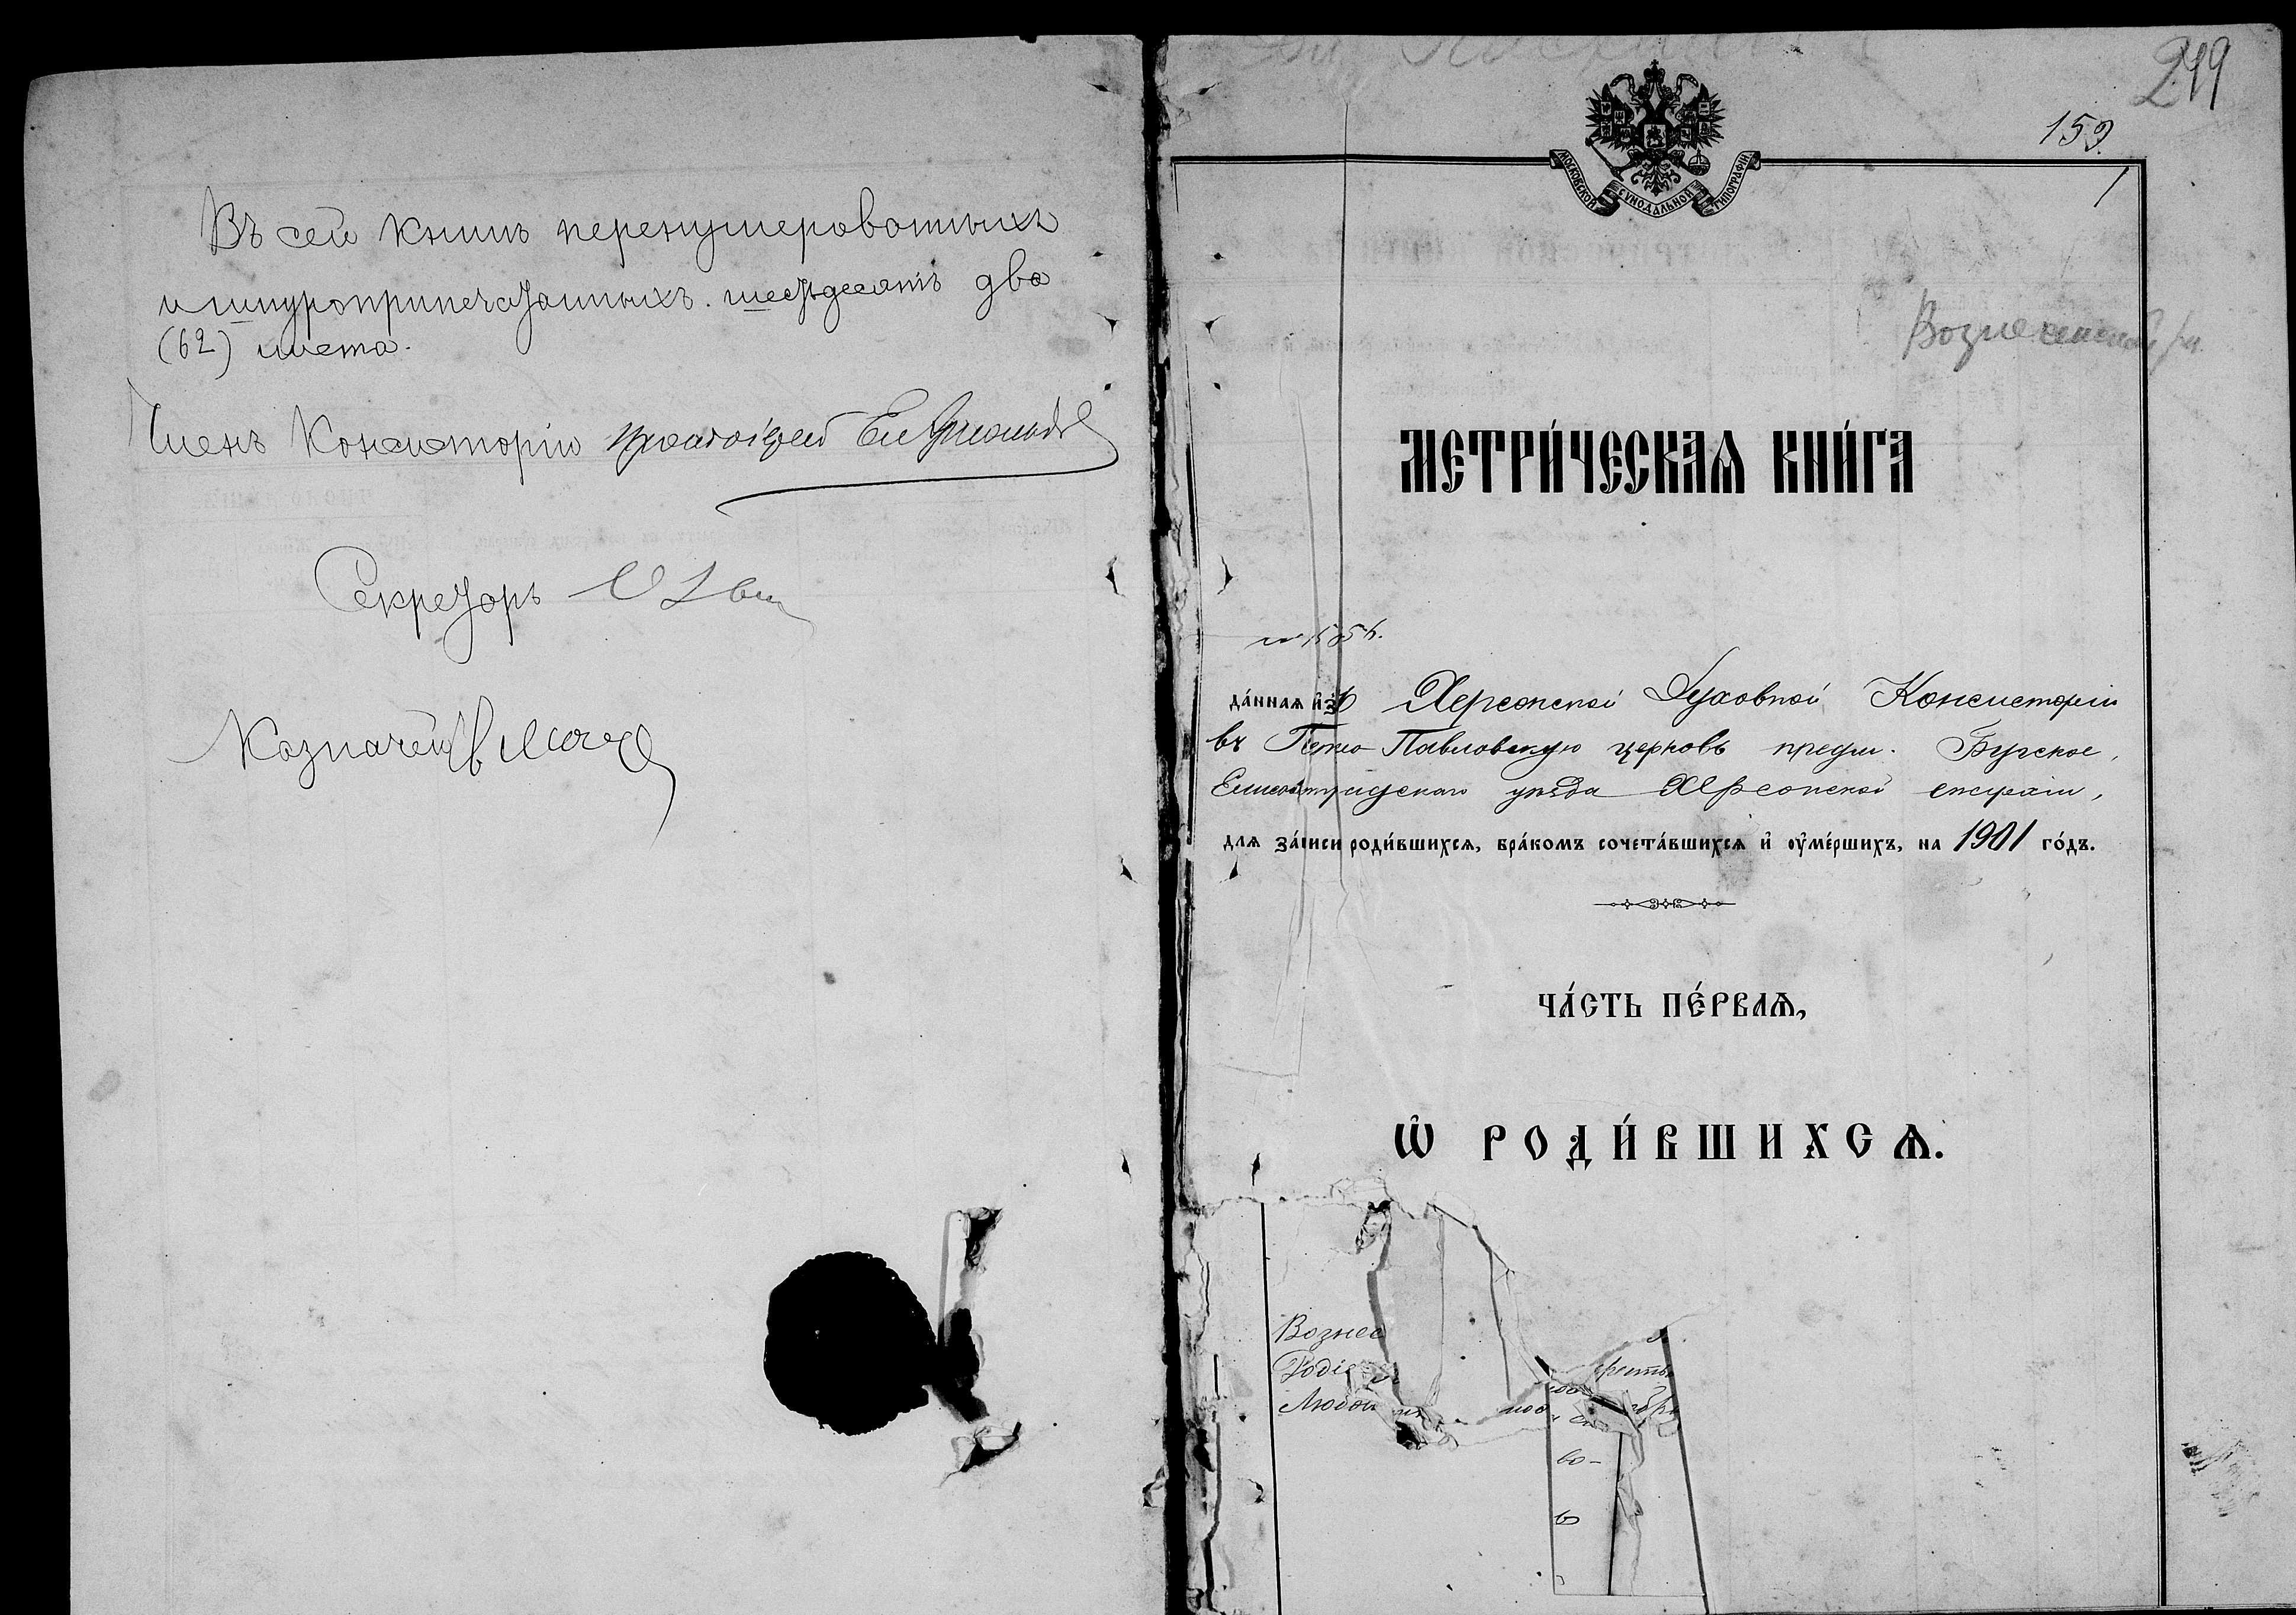 Въ сей книгѣ перенумерованныхъ
и шнуроприпечатанныхъ шестьдесятъ два
(62) листа.
Членъ Консисторіи протоіерей
Секретарь
Казначей
249
159
1
МОСКОВСКОЙ СѴНОДАЛЬНОЙ ТИПОГРАФІИ
МЕТРИ́ЧЕСКАѦ КНИ́ГА
да́ннаѧ и҆зъ Херсонской Духовной Консисторіи
въ Петро-Павловскую церковь предм. Бугское,
Елисаветградскаго уѣзда Херсонской епархіи,
для за́писи роди́вшихсѧ, бра́комъ сочета́вшихсѧ и҆ ᲂу҆ме́ршихъ, на 1901 го́дъ.
ЧА́СТЬ ПЕ́РВАѦ,
Ѽ РОДИ́ВШИХСѦ.
Вознес
Родіон
Любов
во-